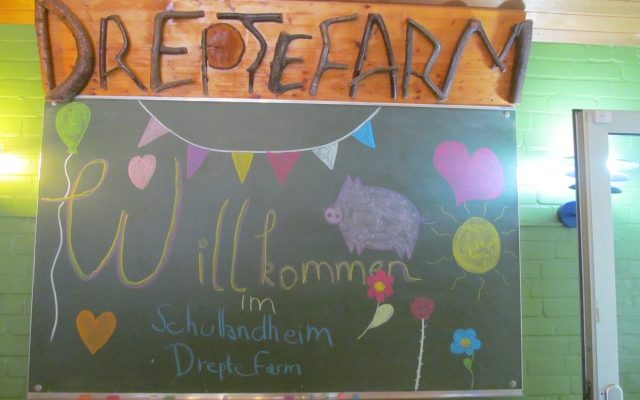 DREPTEFARM
Willkommen
im
Schullandheim
Drepte Farm